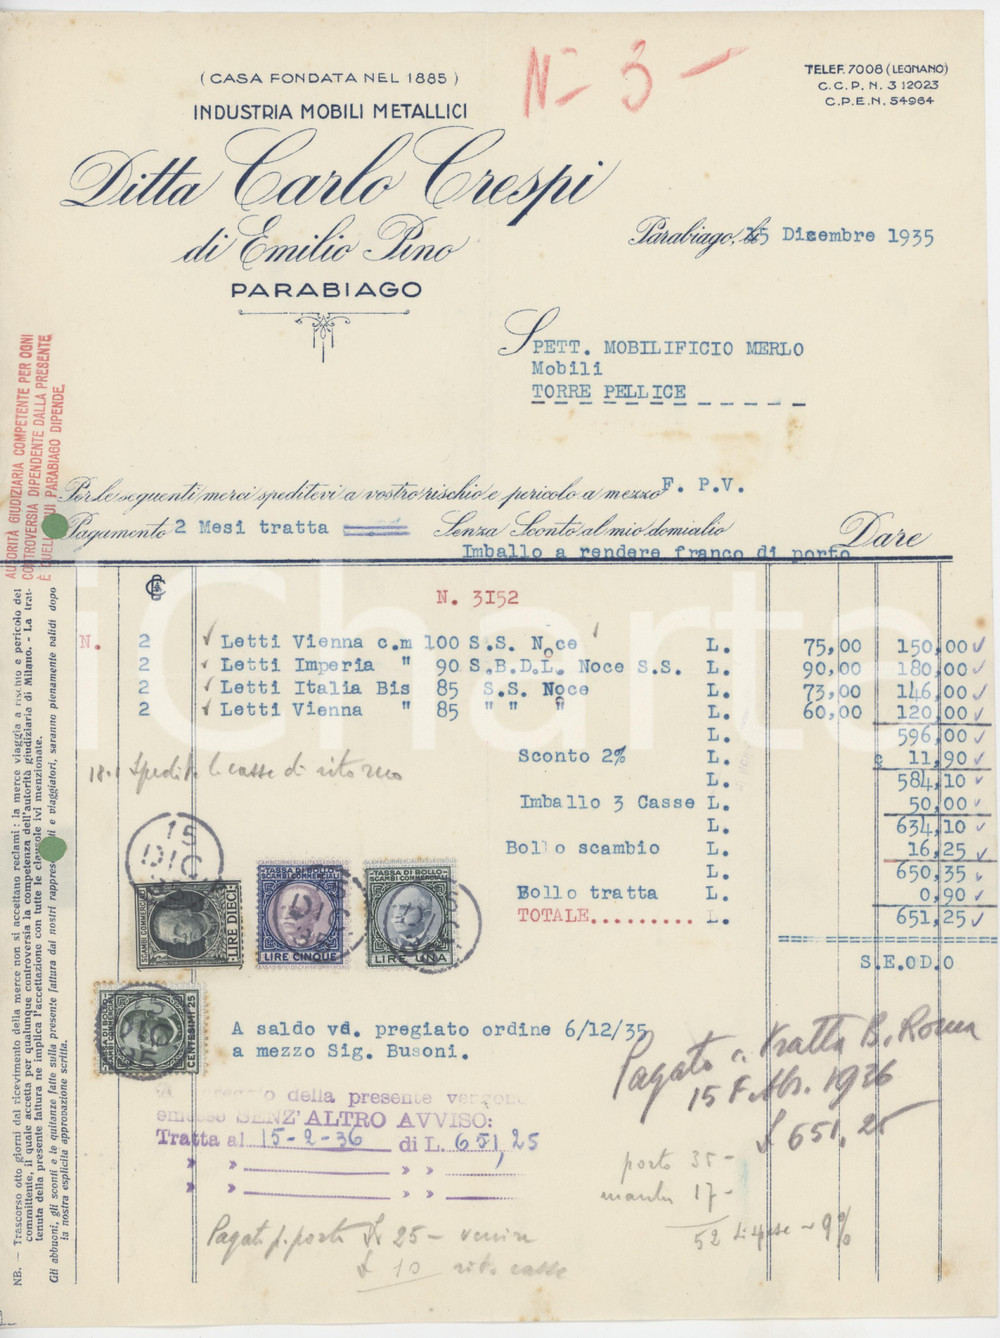 N- 3 -
(CASA FONDATA NEL 1885)
INDUSTRIA MOBILI METALLICI
Ditta Carlo Crespi
di Emilio Pino
PARABIAGO
TELEF. 7008 (LEGNANO)
C.C.P. N. 3 12023
C.P.E.N. 54964
Parabiago, li 15 Dicembre 1935
SPETT. MOBILIFICIO MERLO
Mobili
TORRE PELLICE
AUTORITÀ GIUDIZIARIA COMPETENTE PER OGNI
CONTROVERSIA DIPENDENTE DALLA PRESENTE
È QUELLA CUI PARABIAGO DIPENDE.
Per le seguenti merci speditevi a vostro rischio e pericolo a mezzo F. P.V.
Pagamento 2 Mesi tratta Senza Sconto al mio domicilio Dare
Imballo a rendere franco di porto
N. 3152
N. 2 Letti Vienna c.m 100 S.S. Noce L. 75,00 150,00
2 Letti Imperia " 90 S.B.D.L. Noce S.S. L. 90,00 180,00
2 Letti Italia Bis 85 S.S. Noce L. 73,00 146,00
2 Letti Vienna " 85 " " " L. 60,00 120,00
L. 596,00
Sconto 2% 11,90
L. 584,10
Imballo 3 Casse L. 50,00
L. 634,10
Bollo scambio L. 16,25
L. 650,35
Bollo tratta L. 0,90
TOTALE......... L. 651,25
S.E.O D.O
18.1 Spedite le casse di ritorno
15 DIC
SCAMBI COMMERCIALI
LIRE DIECI
TASSA DI BOLLO
SCAMBI COMMERCIALI
LIRE CINQUE
TASSA DI BOLLO
SCAMBI COMMERCIALI
LIRE UNA
CENTESIMI 25
A saldo vd. pregiato ordine 6/12/35
a mezzo Sig. Busoni.
della presente vengono
emesse SENZ'ALTRO AVVISO:
Tratta al 15-2-36 di L. 651,25
» » » »
» » » »
Pagato a Tratta B. Roma
15 Febbr. 1936
£ 651.25
porto 35-
17-
52 spese - 9%
Pagati p. porto £ 25 -
£ 10 casse
NB. — Trascorso otto giorni dal ricevimento della merce non si accettano reclami: la merce viaggia a rischio e pericolo del
committente, il quale accetta per qualunque controversia la competenza dell'autorità giudiziaria di Milano. - La trat-
tenuta della presente fattura ne implica l'accettazione con tutte le clausole ivi menzionate.
Gli abbuoni, gli sconti e le quitanze fatte sulla presente fattura dai nostri rappresentanti e viaggiatori, saranno pienamente validi dopo
la nostra esplicita approvazione scritta.
iCharta